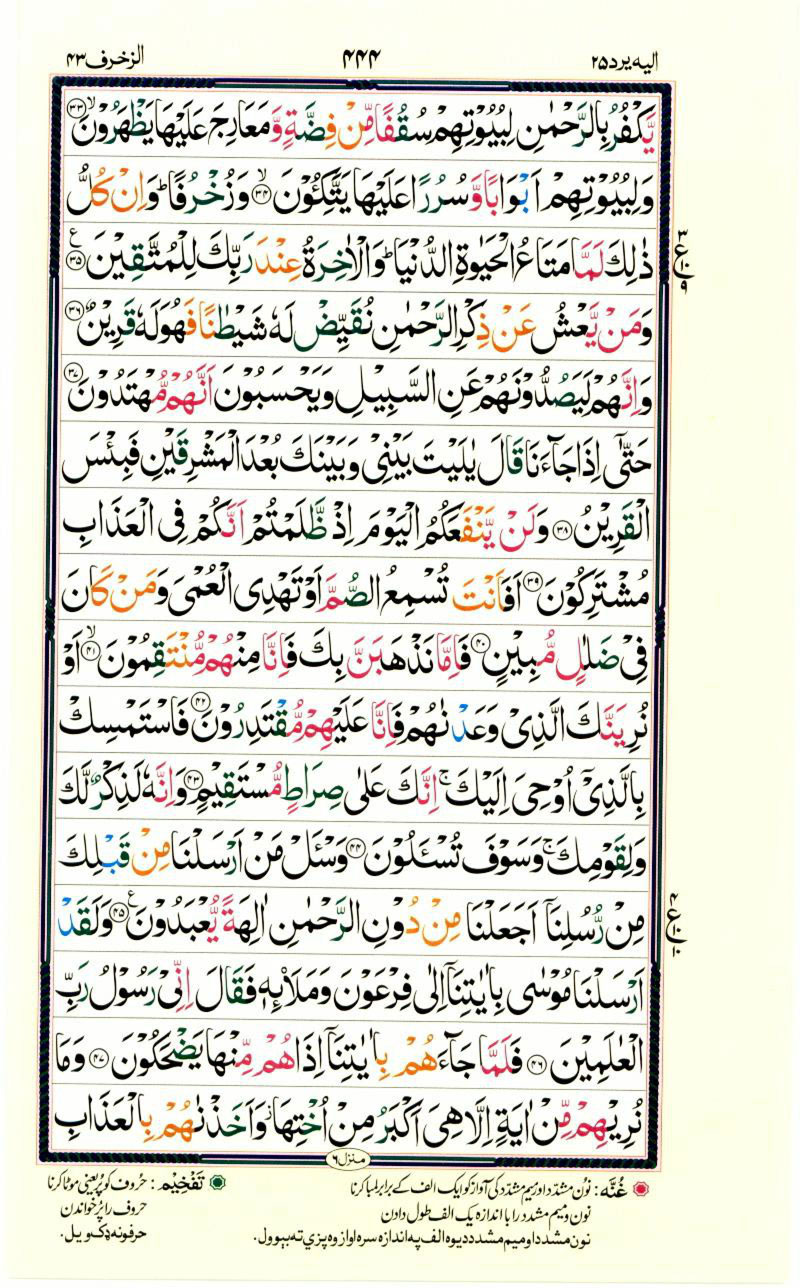 الیه یرد ۲۵ ۴۴۴ الزخرف ۴۳
یَّكْفُرُ بِالرَّحْمٰنِ لِبُیُوْتِهِمْ سُقُفًا مِّنْ فِضَّةٍ وَّ مَعَارِجَ عَلَیْهَا یَظْهَرُوْنَ ۙ﴿۳۳﴾
وَ لِبُیُوْتِهِمْ اَبْوَابًا وَّ سُرُرًا عَلَیْهَا یَتَّكِـُٔوْنَ ۙ﴿۳۴﴾ وَ زُخْرُفًا ؕ وَ اِنْ كُلُّ
ذٰلِكَ لَمَّا مَتَاعُ الْحَیٰوةِ الدُّنْیَا ؕ وَ الْاٰخِرَةُ عِنْدَ رَبِّكَ لِلْمُتَّقِیْنَ ﴿۳۵﴾ع
ع ۳ ۱۰ ۹
وَ مَنْ یَّعْشُ عَنْ ذِكْرِ الرَّحْمٰنِ نُقَیِّضْ لَهٗ شَیْطٰنًا فَهُوَ لَهٗ قَرِیْنٌ ﴿۳۶﴾
وَ اِنَّهُمْ لَیَصُدُّوْنَهُمْ عَنِ السَّبِیْلِ وَ یَحْسَبُوْنَ اَنَّهُمْ مُّهْتَدُوْنَ ﴿۳۷﴾
حَتّٰۤی اِذَا جَآءَنَا قَالَ یٰلَیْتَ بَیْنِیْ وَ بَیْنَكَ بُعْدَ الْمَشْرِقَیْنِ فَبِئْسَ
الْقَرِیْنُ ﴿۳۸﴾ وَ لَنْ یَّنْفَعَكُمُ الْیَوْمَ اِذْ ظَّلَمْتُمْ اَنَّكُمْ فِی الْعَذَابِ
مُشْتَرِكُوْنَ ﴿۳۹﴾ اَفَاَنْتَ تُسْمِعُ الصُّمَّ اَوْ تَهْدِی الْعُمْیَ وَ مَنْ كَانَ
فِیْ ضَلٰلٍ مُّبِیْنٍ ﴿۴۰﴾ فَاِمَّا نَذْهَبَنَّ بِكَ فَاِنَّا مِنْهُمْ مُّنْتَقِمُوْنَ ۙ﴿۴۱﴾ اَوْ
نُرِیَنَّكَ الَّذِیْ وَعَدْنٰهُمْ فَاِنَّا عَلَیْهِمْ مُّقْتَدِرُوْنَ ﴿۴۲﴾ فَاسْتَمْسِكْ
بِالَّذِیْۤ اُوْحِیَ اِلَیْكَ ۚ اِنَّكَ عَلٰی صِرَاطٍ مُّسْتَقِیْمٍ ﴿۴۳﴾ وَ اِنَّهٗ لَذِكْرٌ لَّكَ
وَ لِقَوْمِكَ ۚ وَ سَوْفَ تُسْـَٔلُوْنَ ﴿۴۴﴾ وَسْـَٔلْ مَنْ اَرْسَلْنَا مِنْ قَبْلِكَ
مِنْ رُّسُلِنَاۤ اَجَعَلْنَا مِنْ دُوْنِ الرَّحْمٰنِ اٰلِهَةً یُّعْبَدُوْنَ ﴿۴۵﴾ع وَ لَقَدْ
ع ۴ ۱۰ ۱۰
اَرْسَلْنَا مُوْسٰی بِاٰیٰتِنَاۤ اِلٰی فِرْعَوْنَ وَ مَلَاۡئِهٖ فَقَالَ اِنِّیْ رَسُوْلُ رَبِّ
الْعٰلَمِیْنَ ﴿۴۶﴾ فَلَمَّا جَآءَهُمْ بِاٰیٰتِنَاۤ اِذَا هُمْ مِّنْهَا یَضْحَكُوْنَ ﴿۴۷﴾ وَ مَا
نُرِیْهِمْ مِّنْ اٰیَةٍ اِلَّا هِیَ اَكْبَرُ مِنْ اُخْتِهَا ؗ وَ اَخَذْنٰهُمْ بِالْعَذَابِ
منزل ۶
غُنّه: نون مشدّد اور میم مشدّد کی آواز کو ایک الف کے برابر لمبا کرنا تَفْخِیْم: حروف کو پُر یعنی موٹا کرنا
نون و میم مشدد را با اندازه یک الف طول دادن حروف را پُر خواندن
نون مشدد او میم مشدد د یوه الف په اندازه سره اواز وه پزې ته بېوول. حرفونه ډک ویل.